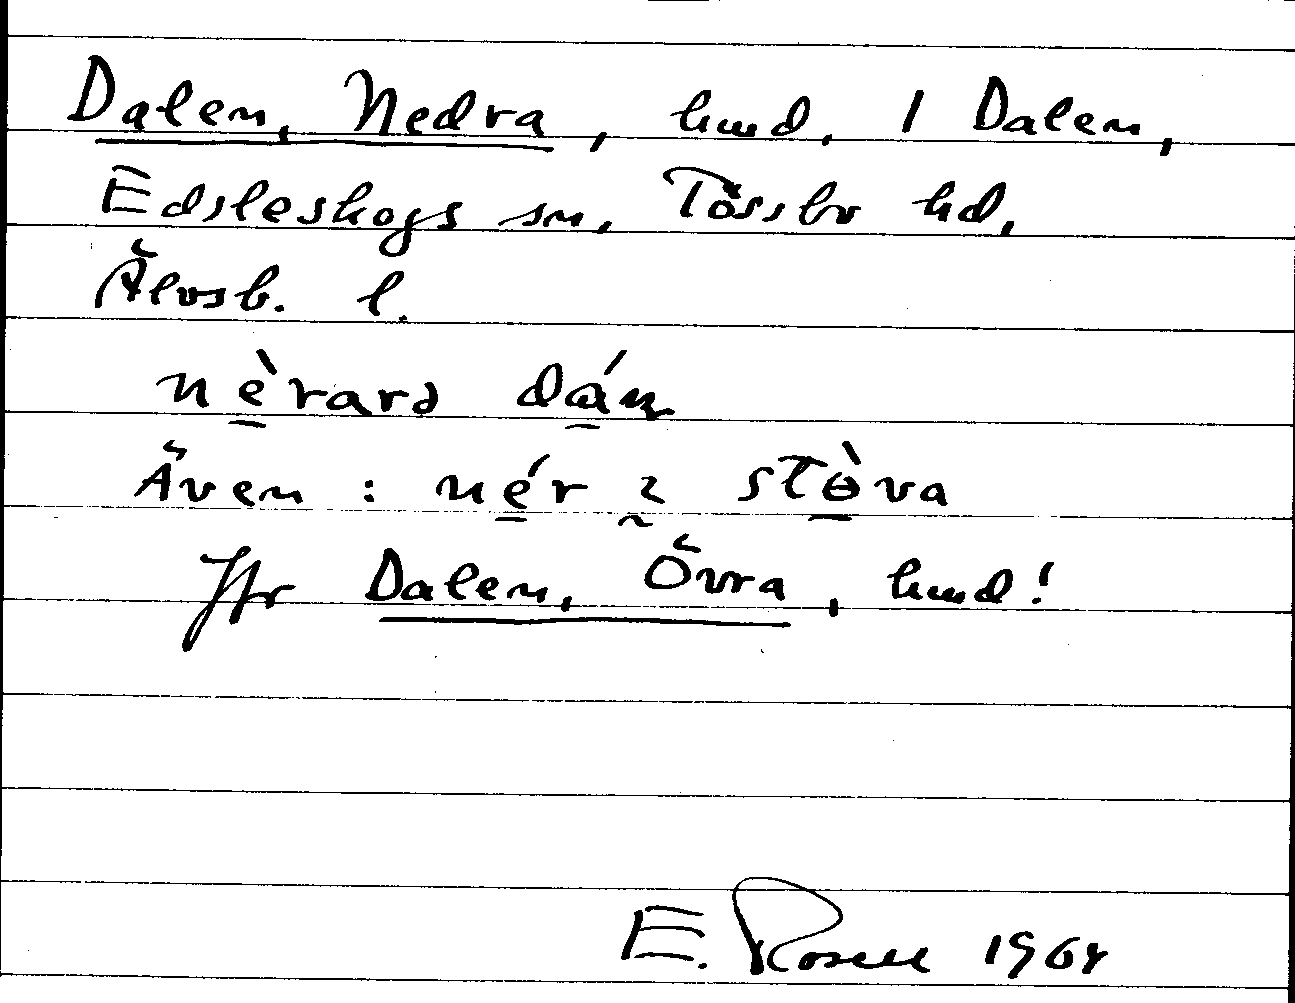 Dalen, Nedra, hmd. 1 Dalen,
Edsleskogs sn, Tössbo hd,
Älvsb. l.
nèrarə dán
Även: nér ɩ stòva
Jfr Dalen, Övra, hmd!
E. Rosell 1964